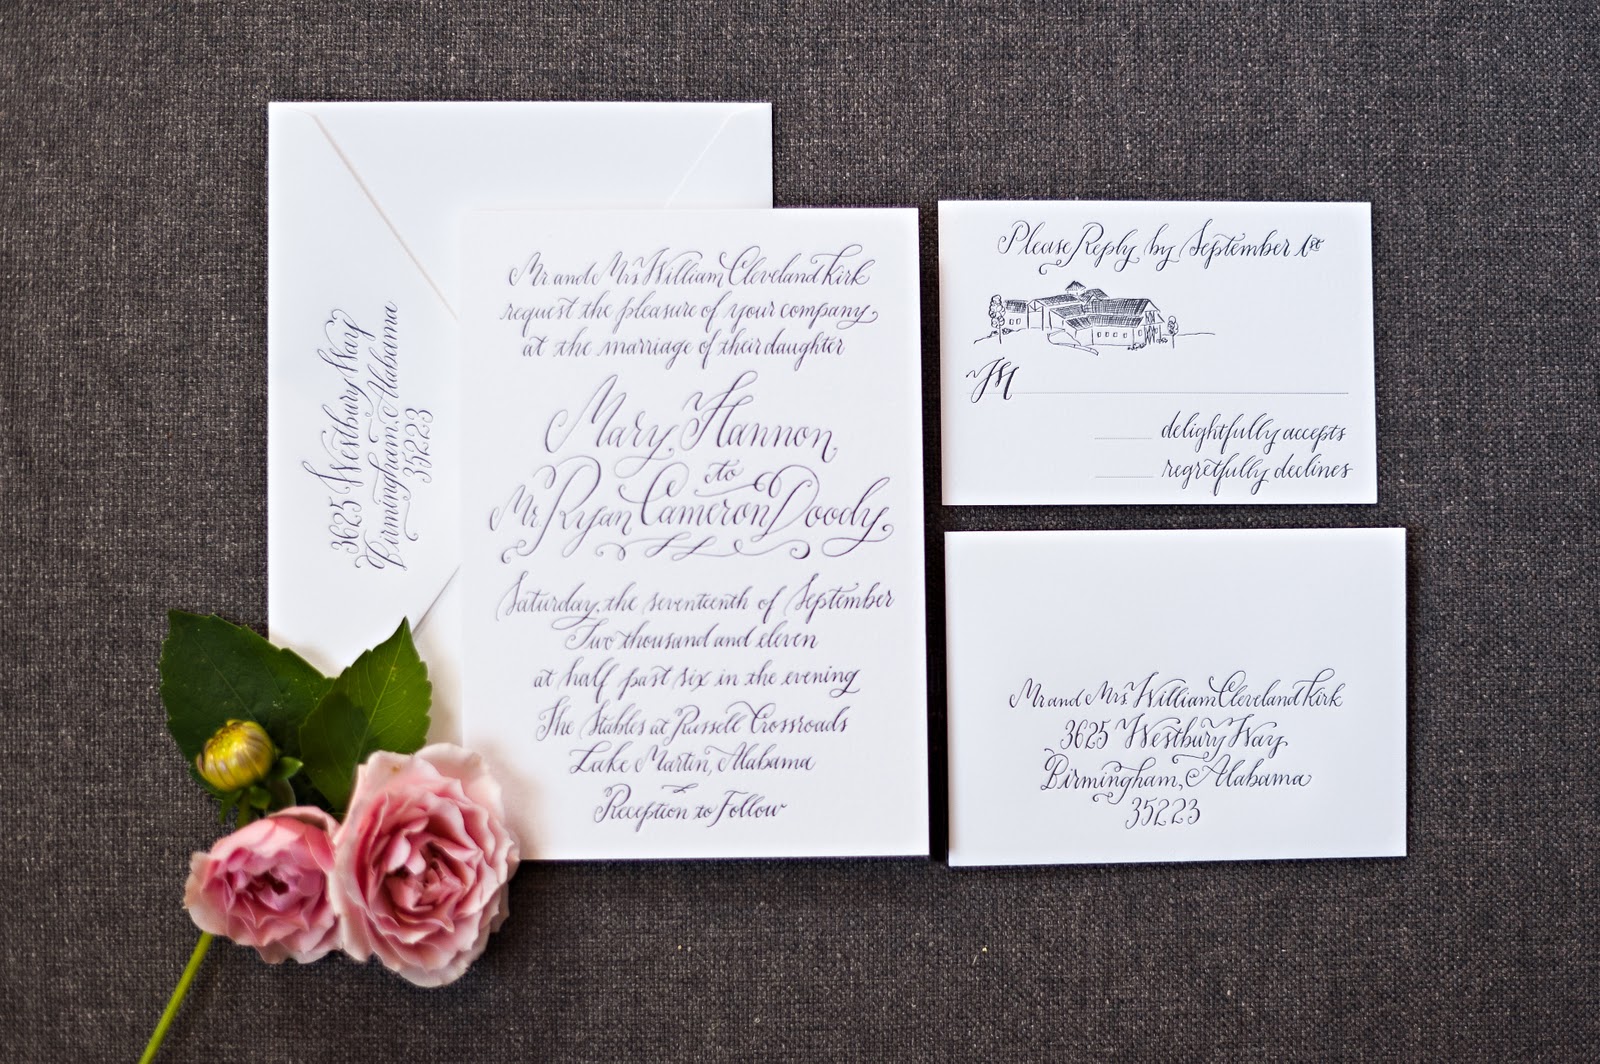 3625 Westbury Way
Birmingham, Alabama
35223
Mr and Mrs William Cleveland Kirk
request the pleasure of your company
at the marriage of their daughter
Mary Hannon
to
Mr. Ryan Cameron Doody
Saturday, the seventeenth of September
Two thousand and eleven
at half past six in the evening
The Stables at Russell Crossroads
Lake Martin, Alabama
Reception to Follow
Please Reply by September 1st
M
delightfully accepts
regretfully declines
Mr and Mrs William Cleveland Kirk
3625 Westbury Way
Birmingham, Alabama
35223